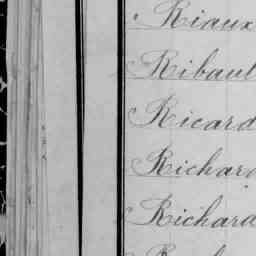 Riaux
Ribaul
Ricard
Richard
Richard